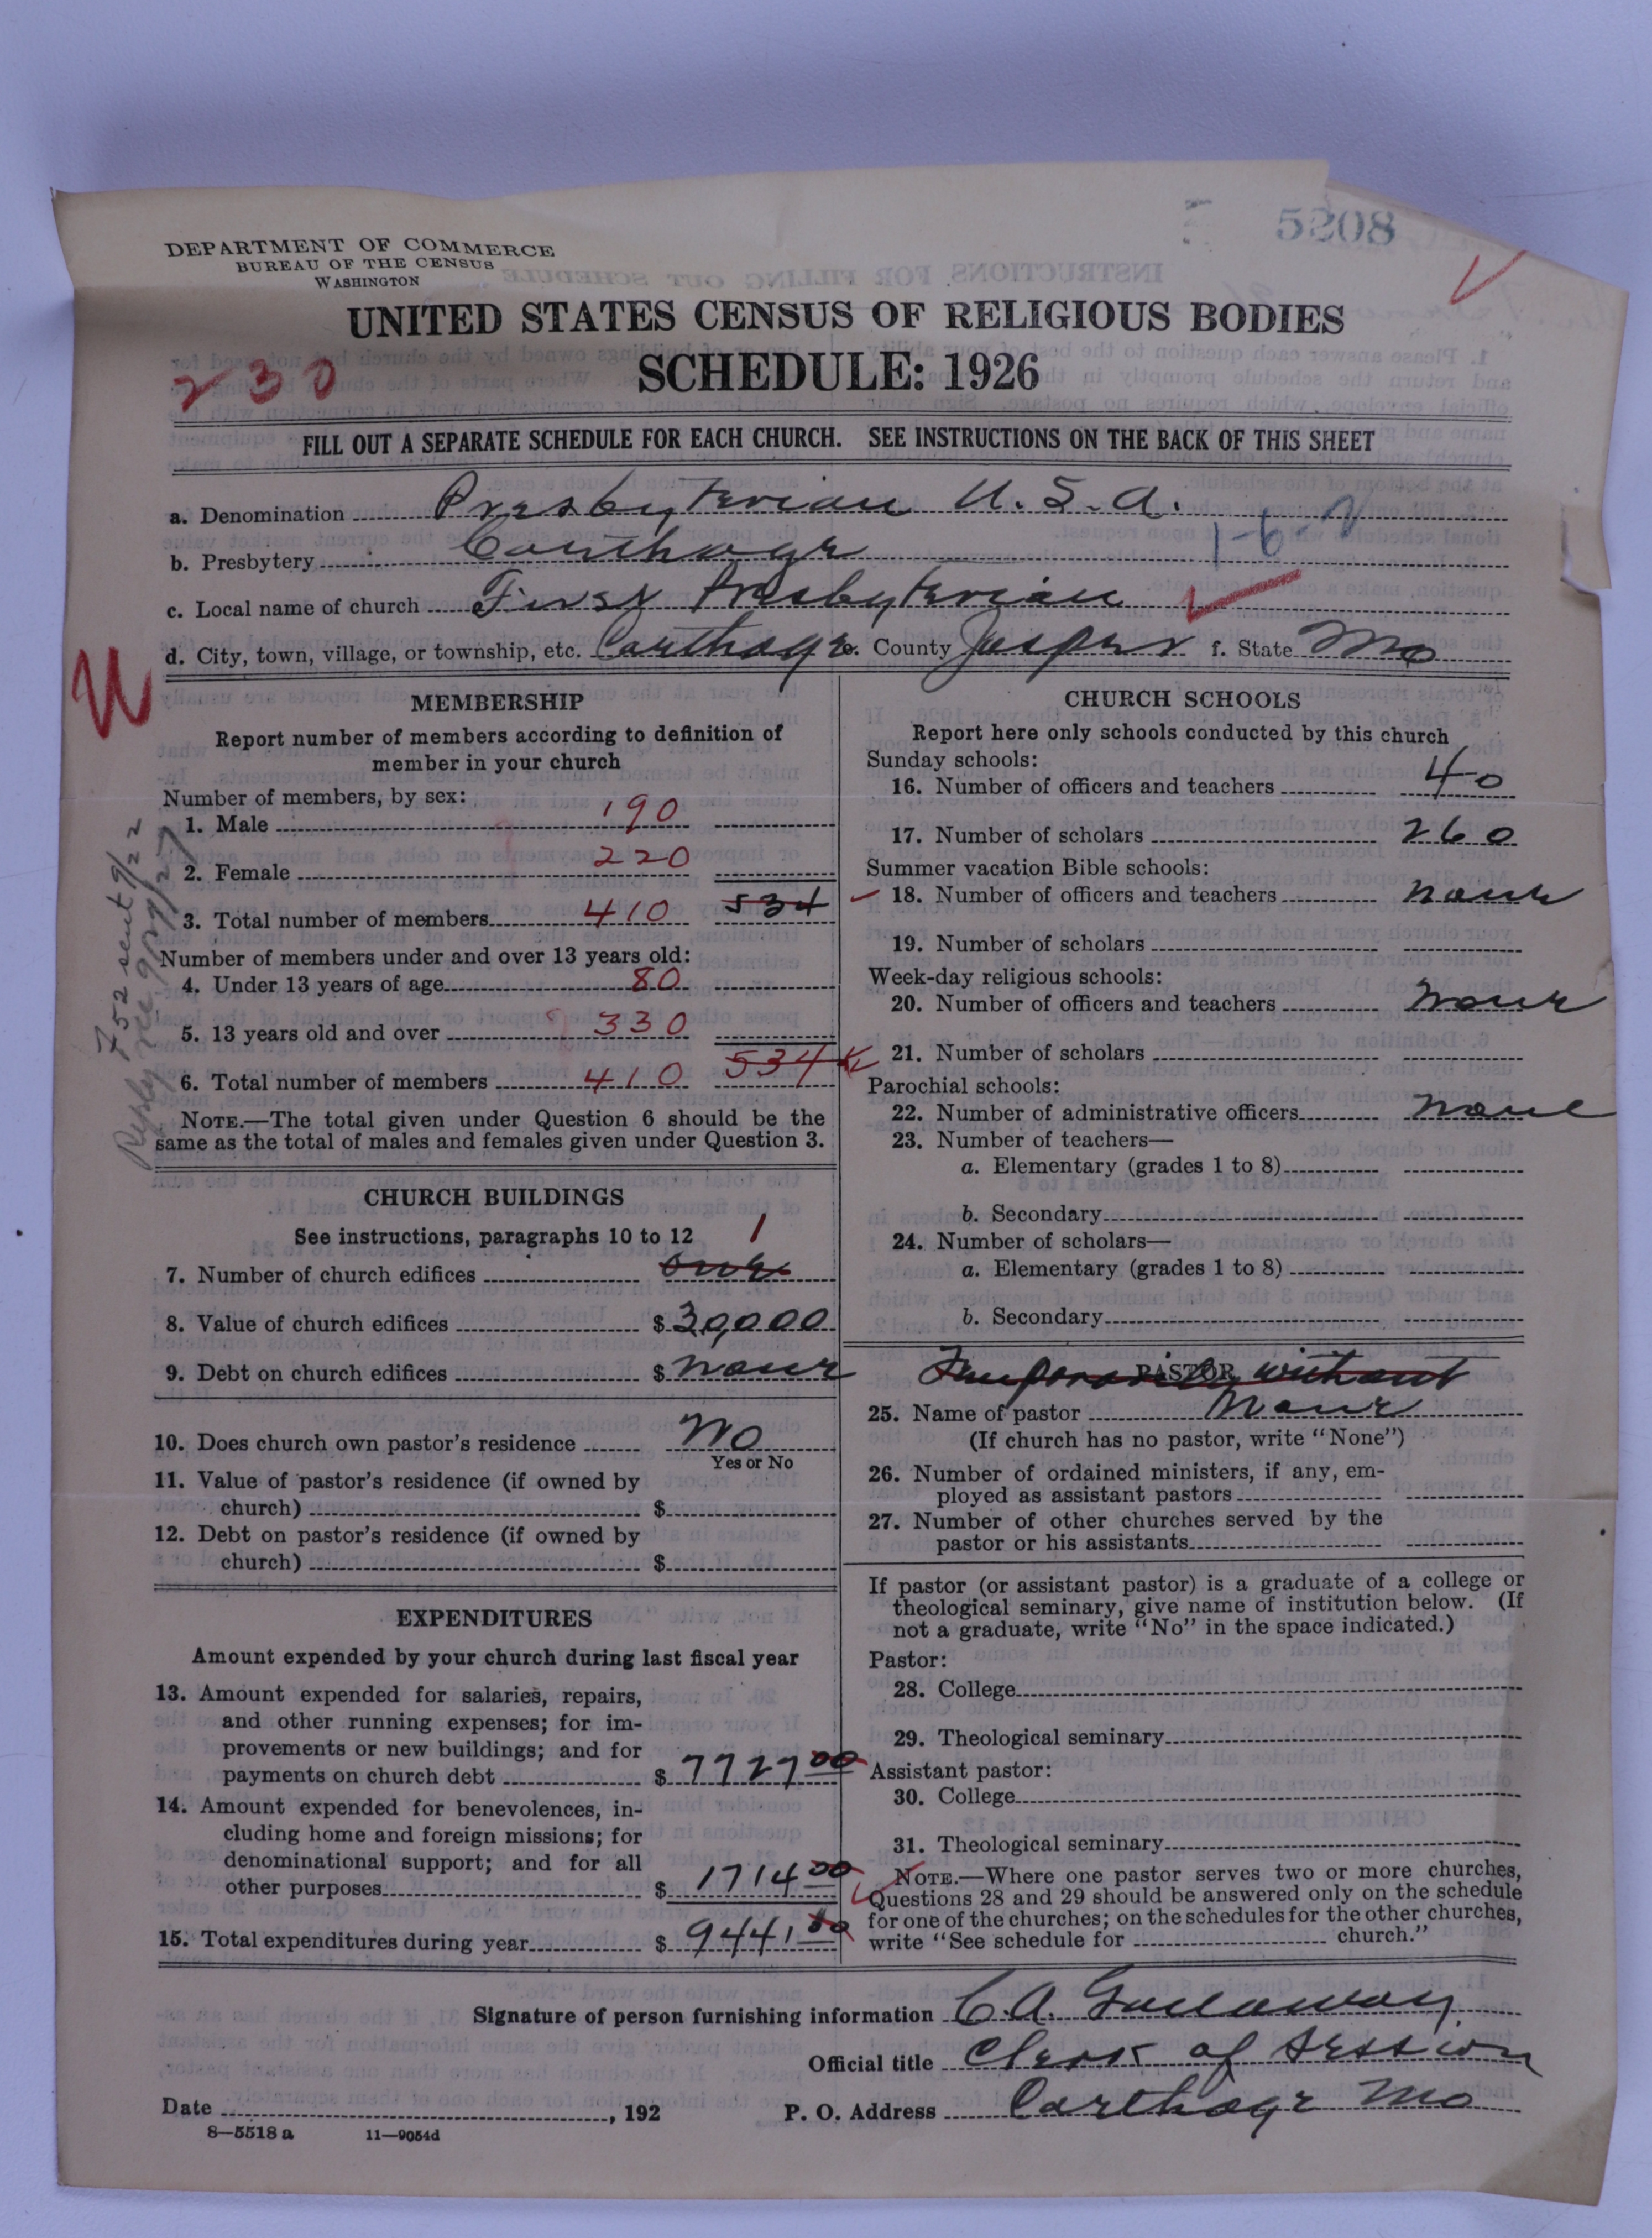 5208
DEPARTMENT OF COMMERCE
BUREAU OF THE CENSUS
WASHINGTON
UNITED STATES CENSUS OF RELIGIOUS BODIES
SCHEDULE: 1926
230
FILL OUT A SEPARATE SCHEDULE FOR EACH CHURCH. SEE INSTRUCTIONS ON THE BACK OF THIS SHEET
a. Denomination Presbyterian U.S.A.
1-6-2
b. Presbytery Carthage
c. Local name of church First Presbyterian
d. City, town, village, or township, etc. Carthage e. County Jasper f. State Mo
MEMBERSHIP
Report number of members according to definition of
member in your church
Number of members, by sex:
1. Male 190
2. Female 220
3. Total number of members 410 534
Number of members under and over 13 years old:
4. Under 13 years of age 80
5. 13 years old and over 330
6. Total number of members 410 534
NOTE.—The total given under Question 6 should be the
same as the total of males and females given under Question 3.
752 sent 9/22
Reply rec 9/27/27
CHURCH BUILDINGS
See instructions, paragraphs 10 to 12
7. Number of church edifices one 1
8. Value of church edifices $ 30,000
9. Debt on church edifices $ None
10. Does church own pastor's residence No
Yes or No
11. Value of pastor's residence (if owned by
church) $
12. Debt on pastor's residence (if owned by
church) $
EXPENDITURES
Amount expended by your church during last fiscal year
13. Amount expended for salaries, repairs,
and other running expenses; for im-
provements or new buildings; and for
payments on church debt $ 7727 00
14. Amount expended for benevolences, in-
cluding home and foreign missions; for
denominational support; and for all
other purposes $ 1714 00
15. Total expenditures during year $ 9441 00
CHURCH SCHOOLS
Report here only schools conducted by this church
Sunday schools:
16. Number of officers and teachers 40
17. Number of scholars 260
Summer vacation Bible schools:
18. Number of officers and teachers None
19. Number of scholars
Week-day religious schools:
20. Number of officers and teachers None
21. Number of scholars
Parochial schools:
22. Number of administrative officers None
23. Number of teachers—
a. Elementary (grades 1 to 8)
b. Secondary
24. Number of scholars—
a. Elementary (grades 1 to 8)
b. Secondary
PASTOR
Temporarily without
25. Name of pastor None
(If church has no pastor, write "None")
26. Number of ordained ministers, if any, em-
ployed as assistant pastors
27. Number of other churches served by the
pastor or his assistants
If pastor (or assistant pastor) is a graduate of a college or
theological seminary, give name of institution below. (If
not a graduate, write "No" in the space indicated.)
Pastor:
28. College
29. Theological seminary
Assistant pastor:
30. College
31. Theological seminary
NOTE.—Where one pastor serves two or more churches,
Questions 28 and 29 should be answered only on the schedule
for one of the churches; on the schedules for the other churches,
write "See schedule for church."
Signature of person furnishing information C. A. Gallaway
Official title Clerk of Session
Date , 192 P. O. Address Carthage Mo
8—5518 a 11—9054d